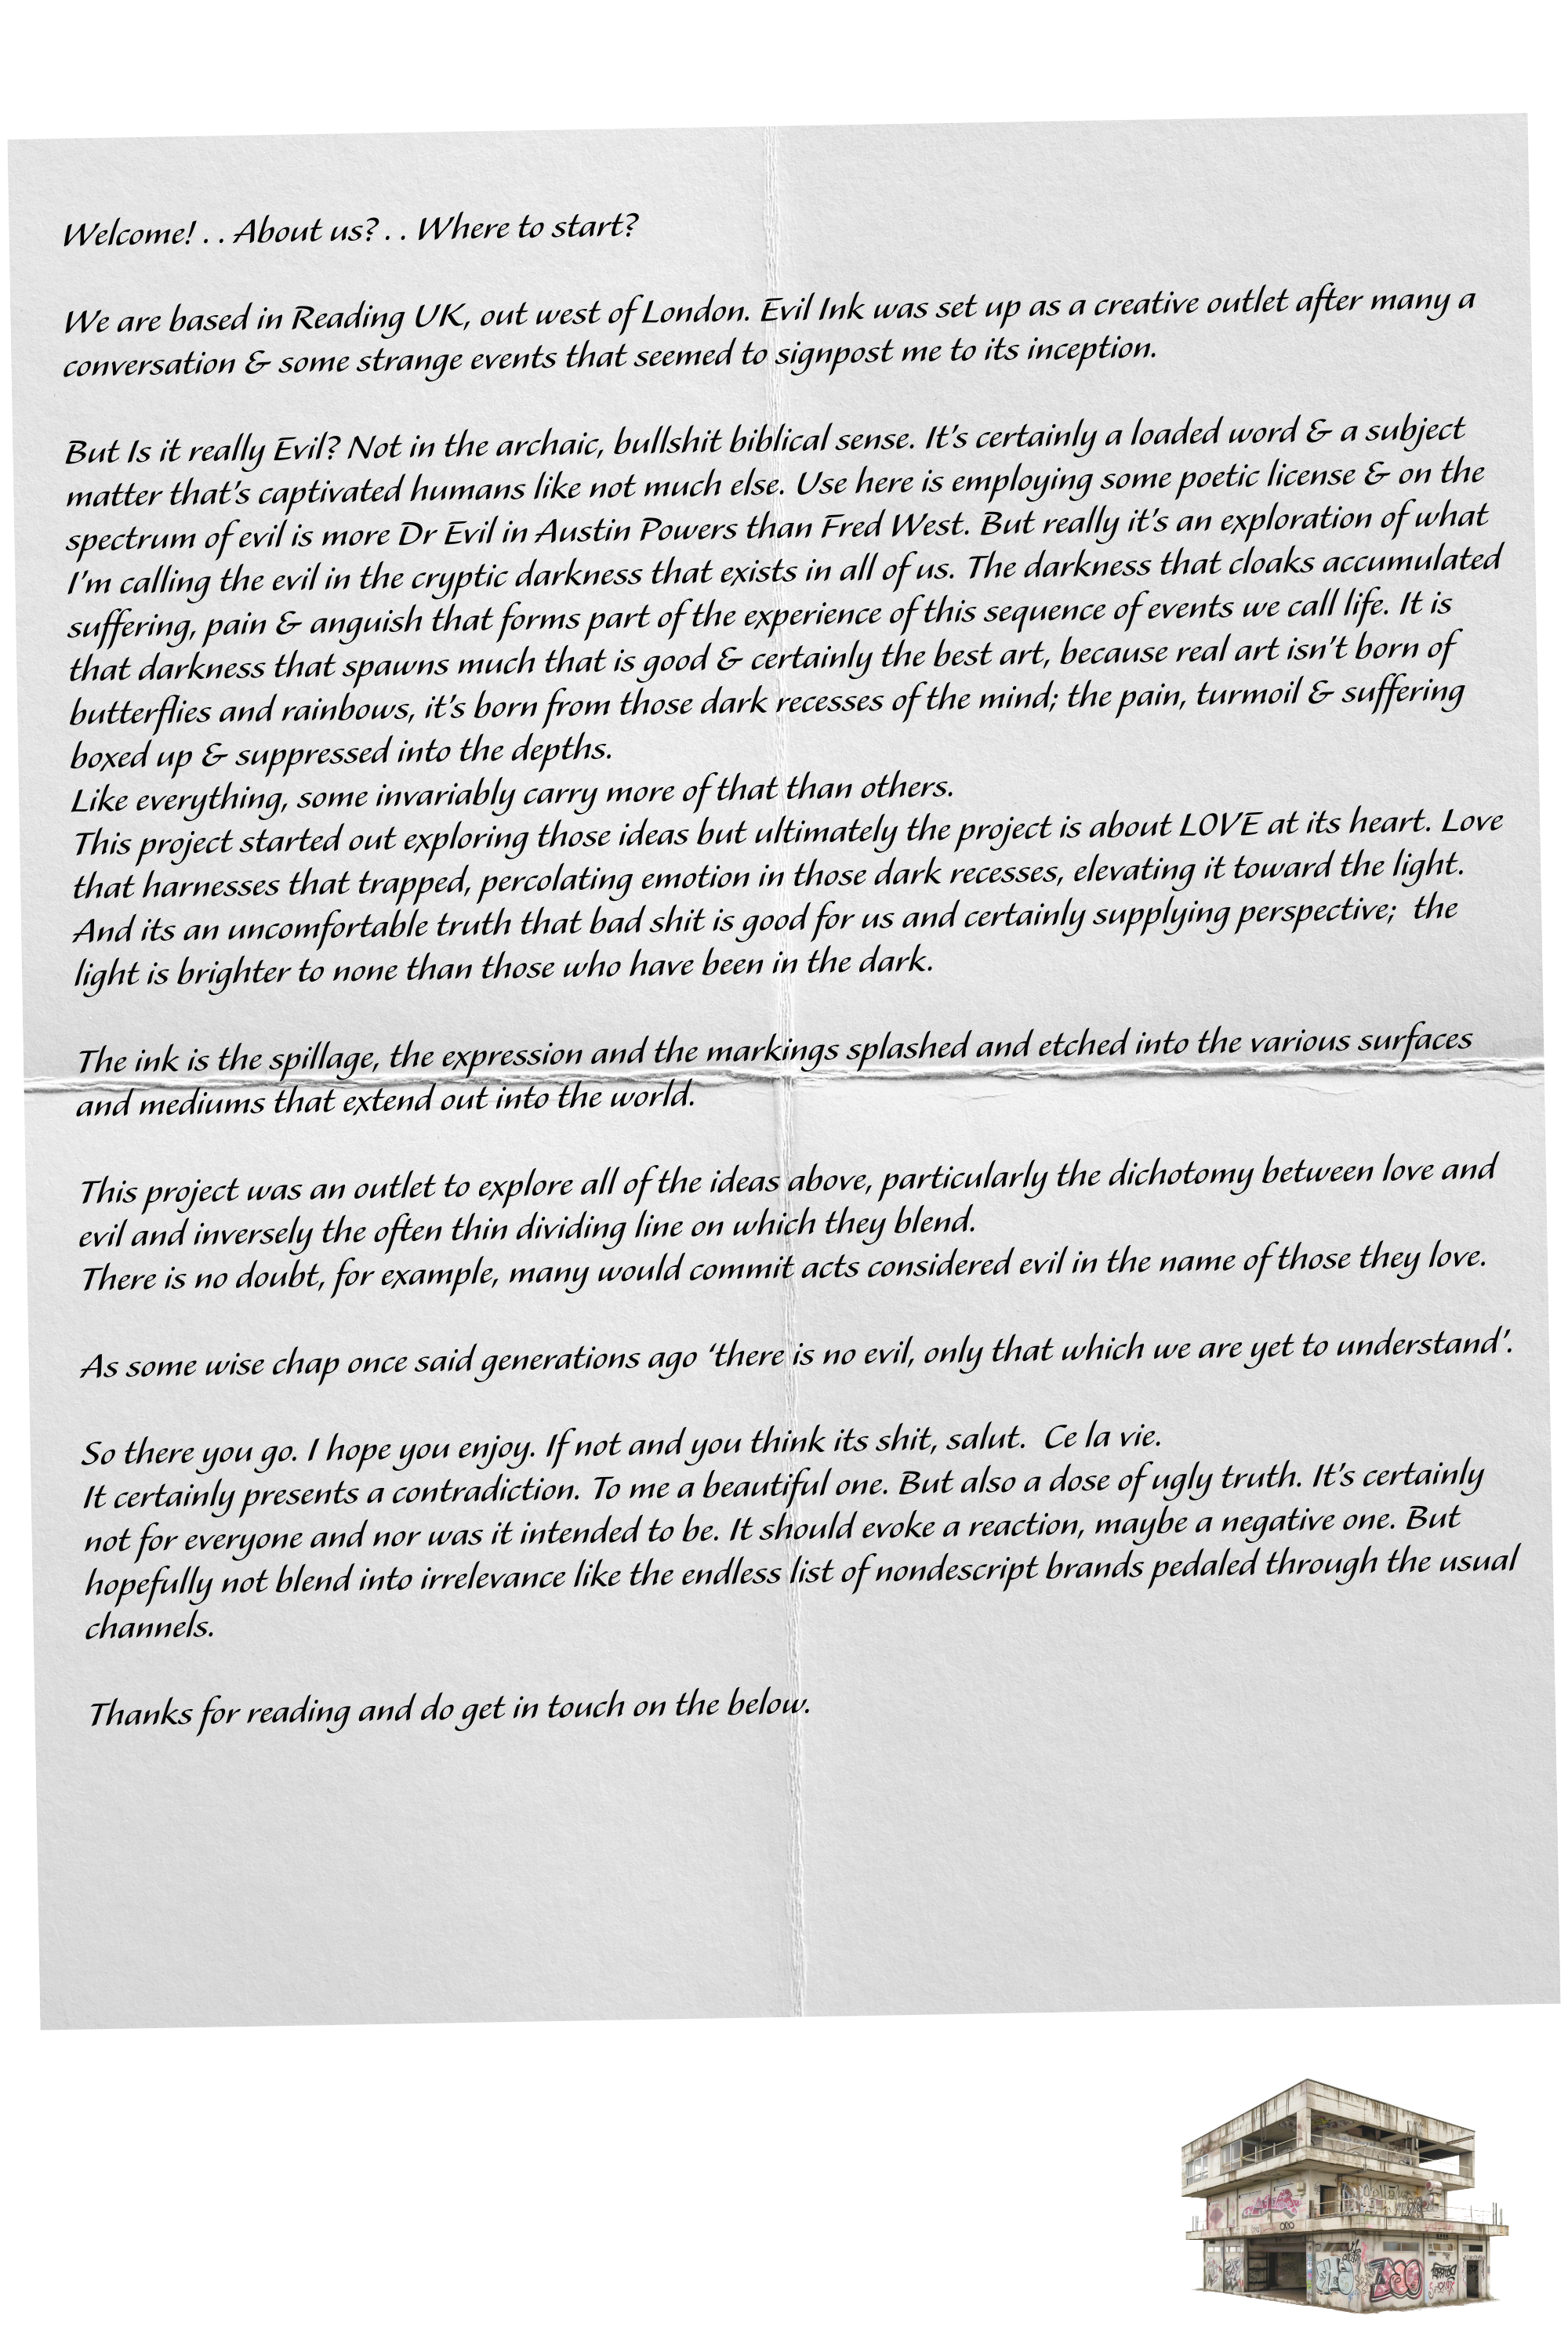 Welcome! . . About us? . . Where to start?
We are based in Reading UK, out west of London. Evil Ink was set up as a creative outlet after many a
conversation & some strange events that seemed to signpost me to its inception.
But Is it really Evil? Not in the archaic, bullshit biblical sense. It's certainly a loaded word & a subject
matter that's captivated humans like not much else. Use here is employing some poetic license & on the
spectrum of evil is more Dr Evil in Austin Powers than Fred West. But really it's an exploration of what
I'm calling the evil in the cryptic darkness that exists in all of us. The darkness that cloaks accumulated
suffering, pain & anguish that forms part of the experience of this sequence of events we call life. It is
that darkness that spawns much that is good & certainly the best art, because real art isn't born of
butterflies and rainbows, it's born from those dark recesses of the mind; the pain, turmoil & suffering
boxed up & suppressed into the depths.
Like everything, some invariably carry more of that than others.
This project started out exploring those ideas but ultimately the project is about LOVE at its heart. Love
that harnesses that trapped, percolating emotion in those dark recesses, elevating it toward the light.
And its an uncomfortable truth that bad shit is good for us and certainly supplying perspective;  the
light is brighter to none than those who have been in the dark.
The ink is the spillage, the expression and the markings splashed and etched into the various surfaces
and mediums that extend out into the world.
This project was an outlet to explore all of the ideas above, particularly the dichotomy between love and
evil and inversely the often thin dividing line on which they blend.
There is no doubt, for example, many would commit acts considered evil in the name of those they love.
As some wise chap once said generations ago 'there is no evil, only that which we are yet to understand'.
So there you go. I hope you enjoy. If not and you think its shit, salut.  Ce la vie.
It certainly presents a contradiction. To me a beautiful one. But also a dose of ugly truth. It's certainly
not for everyone and nor was it intended to be. It should evoke a reaction, maybe a negative one. But
hopefully not blend into irrelevance like the endless list of nondescript brands pedaled through the usual
channels.
Thanks for reading and do get in touch on the below.